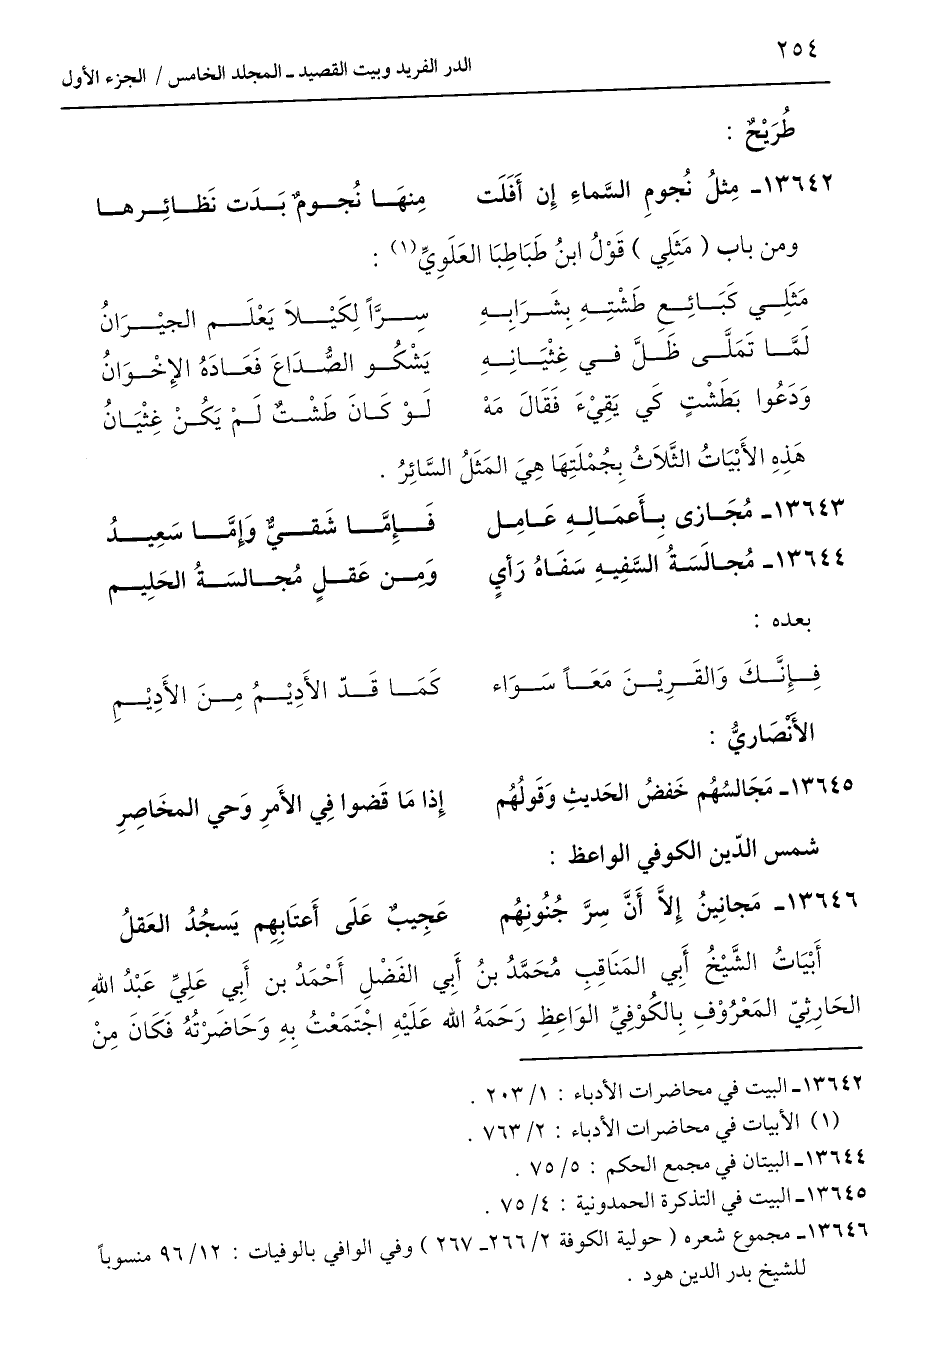 ٢٥٤
الدر الفريد وبيت القصيد ـ المجلد الخامس / الجزء الأول
طُرَيْحٌ :
١٣٦٤٢ـ مِثلُ نُجومِ السَّماءِ إن أَفَلَت منهَا نُجومٌ بَدَت نَظائِرها
ومن باب ( مَثَلِي ) قَوْلُ ابنُ طَبَاطِبَا العَلَوِيِّ(١) :
مَثَلِي كَبَائِعِ طَشْتِهِ بِشَرَابِهِ سِرَّاً لِكَيْلاَ يَعْلَمِ الجيْرَانُ
لَمَّا تَمَلَّى ظَلَّ في غِثْيَانِهِ يَشْكُو الصُّدَاعَ فَعَادَهُ الإِخْوَانُ
وَدَعُوا بَطَشْتٍ كَي يَقِيْءَ فَقَالَ مَهْ لَوْ كَانَ طَشْتٌ لَمْ يَكُنْ غِثْيَانُ
هَذِهِ الأَبْيَاتُ الثَّلاَثُ بِجُمْلَتِهَا هِيَ المَثَلُ السَّائِرُ .
١٣٦٤٣ـ مُجَازى بِأَعمَالِهِ عَامِل فَإمَّا شَقيٌّ وَإمَّا سَعِيدُ
١٣٦٤٤ـ مُجالَسَةُ السَّفيهِ سَفَاهُ رَأيٍ وَمِن عَقلٍ مُجالسَةُ الحَليمِ
بعده :
فِإنَّكَ وَالقَرِيْنَ مَعَاً سَوَاء كَمَا قَدّ الأَدِيْمُ مِنَ الأَدِيْمِ
الأَنْصَاريُّ :
١٣٦٤٥ـ مَجَالسُهُم خَفضُ الحَديثِ وَقَولُهُم إذا مَا قَضوا فِي الأَمرِ وَحي المخَاصِرِ
شمس الدّين الكوفي الواعظ :
١٣٦٤٦ـ مَجانِينُ إلاَّ أنَّ سِرَّ جُنُونِهُم عَجِيبٌ عَلَى أَعتَابِهِم يَسجُدُ العَقلُ
أَبْيَاتُ الشَّيْخُ أبِي المَنَاقِبِ مُحَمَّدُ بنُ أبِي الفَضْلِ أَحْمَدُ بن أبي عَلِيِّ عَبْدُ اللهِ
الحَارِثيّ المَعْرُوْفِ بِالكُوْفِيِّ الوَاعِظِ رَحمَهُ الله عَلَيْهِ اجتَمَعْتُ بِهِ وَحَاضَرْتُهُ فَكَانَ مِنْ
١٣٦٤٢ـ البيت في محاضرات الأدباء : ١/ ٢٠٣ .
(١) الأبيات في محاضرات الأدباء : ٢/ ٧٦٣ .
١٣٦٤٤ـ البيتان في مجمع الحكم : ٥/ ٧٥ .
١٣٦٤٥ـ البيت في التذكرة الحمدونية : ٤/ ٧٥ .
١٣٦٤٦ـ مجموع شعره ( حولية الكوفة ٢/ ٢٦٦ـ ٢٦٧ ) وفي الوافي بالوفيات : ١٢/ ٩٦ منسوباً
للشيخ بدر الدين هود .